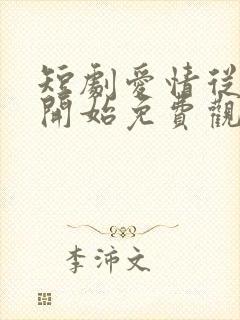 短劇愛情從
開始免費觀
李沛文